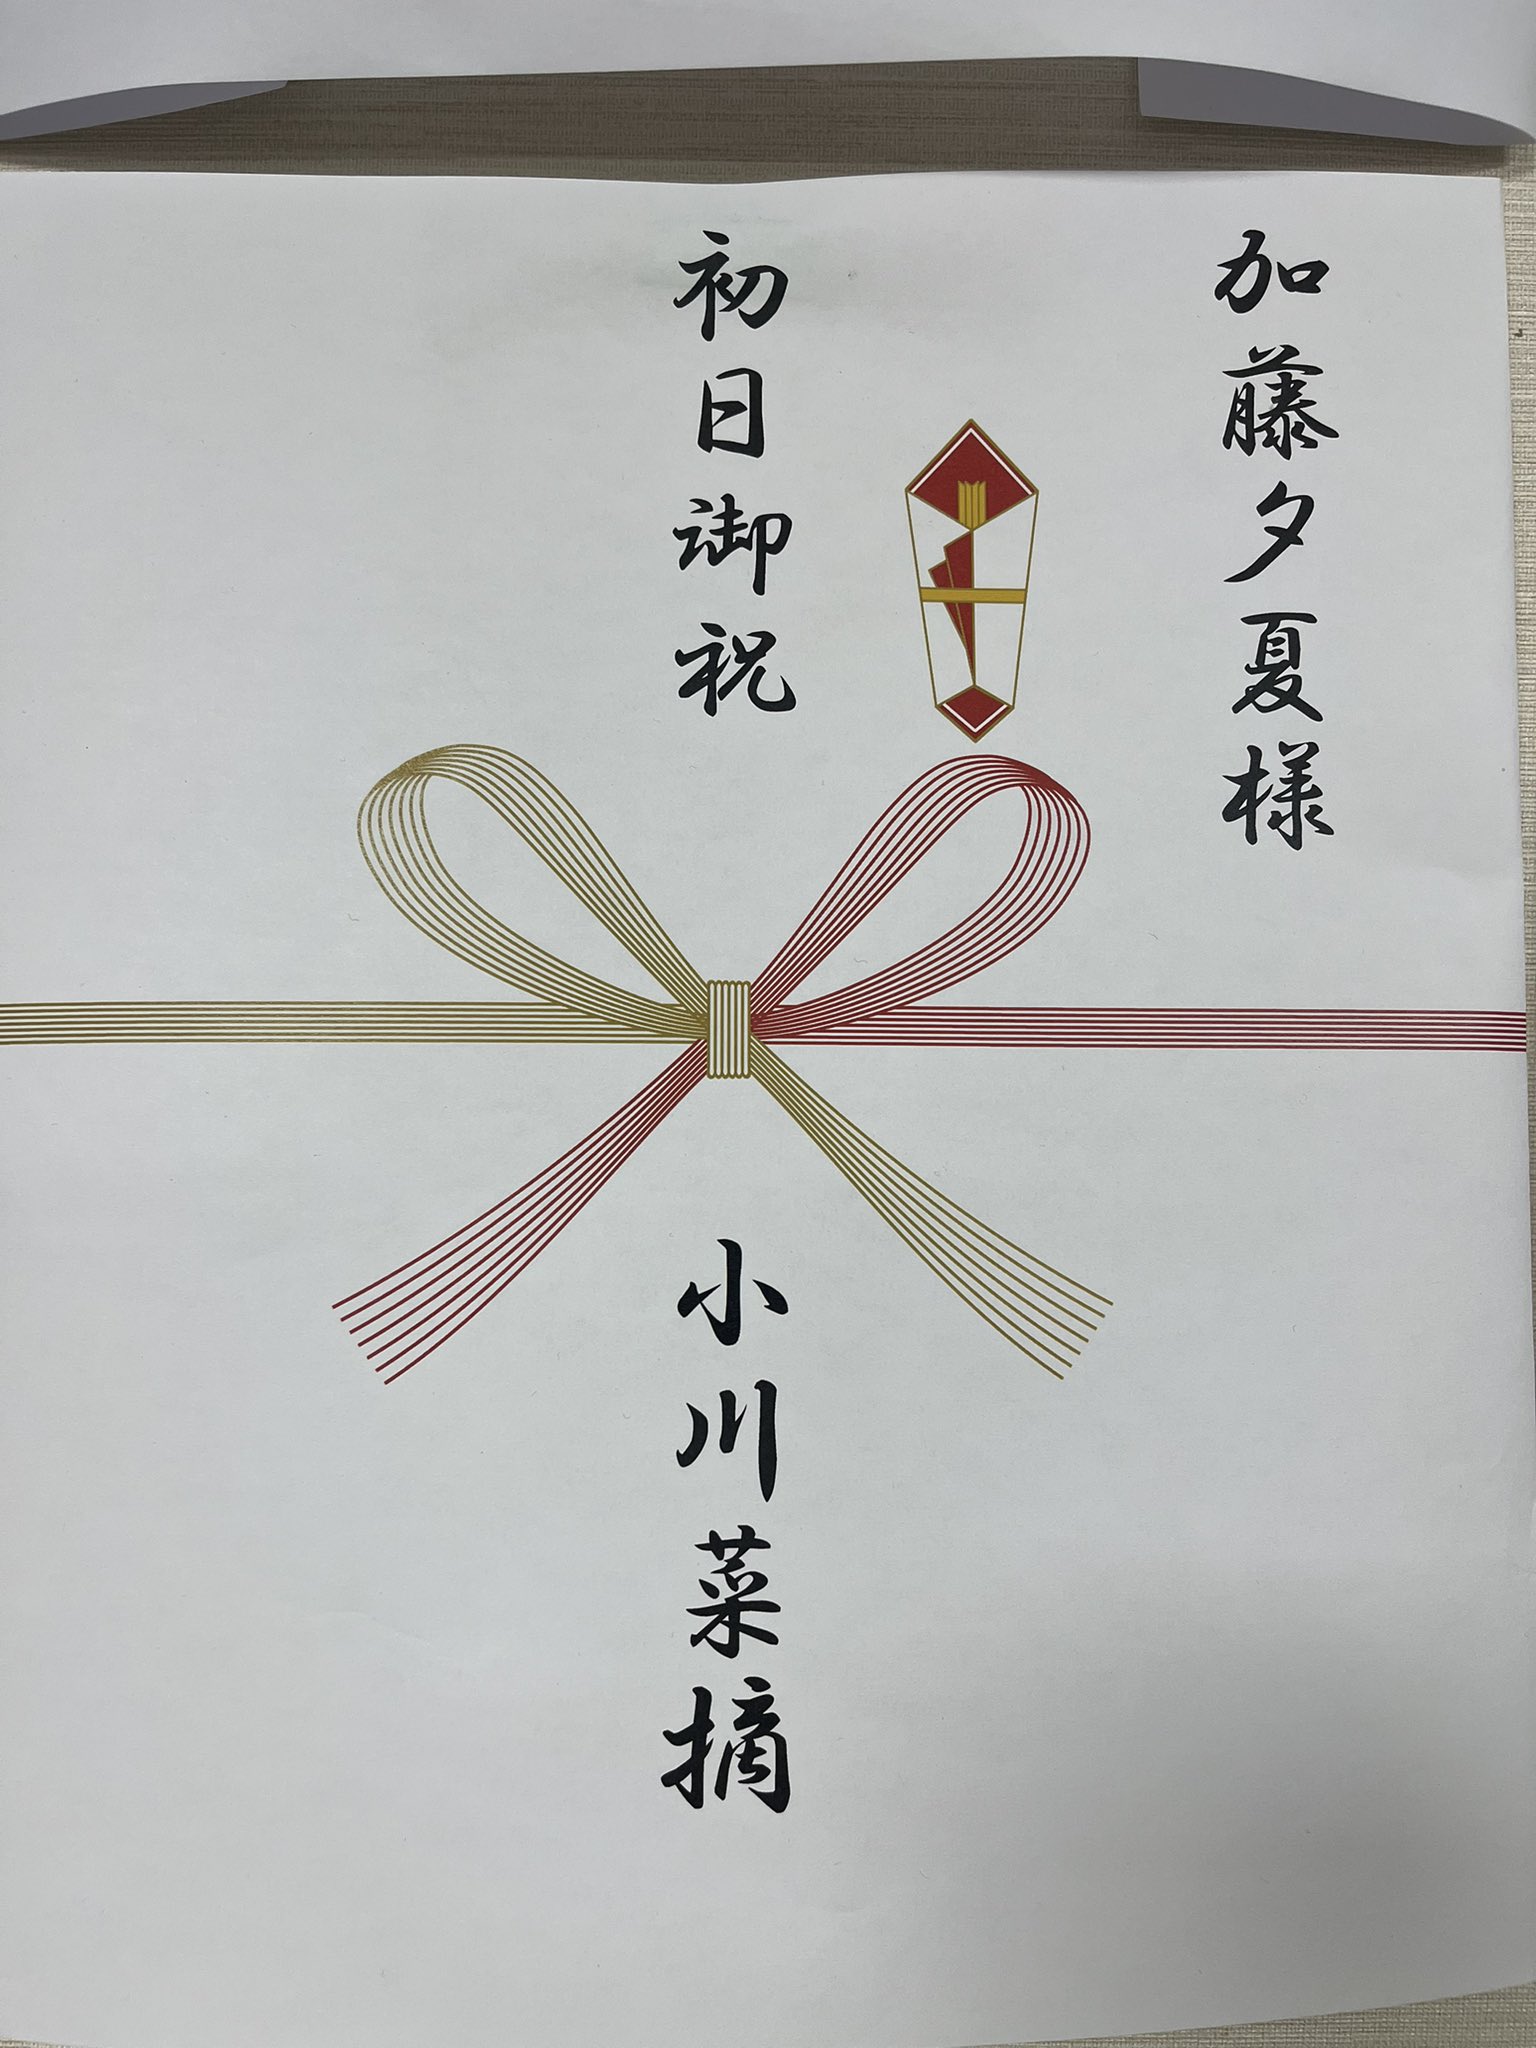 加藤夕夏様
初日御祝
小川菜摘